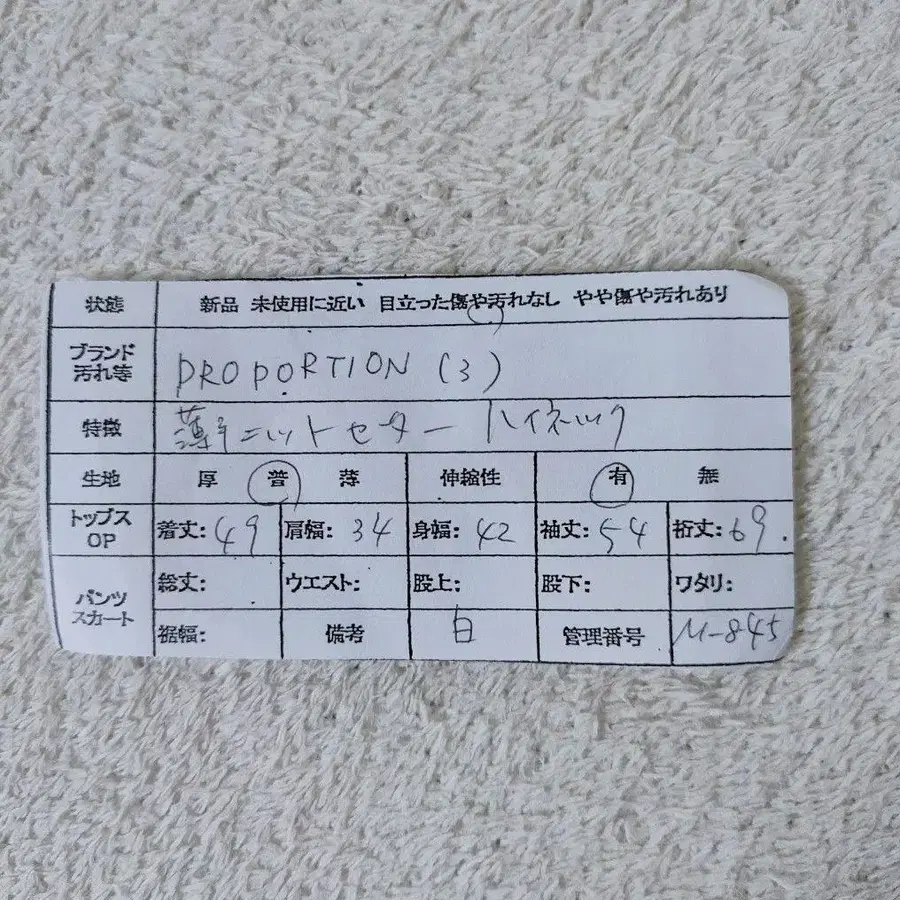 状態 新品 未使用に近い 目立った傷や汚れなし やや傷や汚れあり
ブランド
汚れ等 PROPORTION (3)
特徴 薄手ニットセター ハイネック
生地 厚 普 薄 伸縮性 有 無
トップス
OP 着丈: 49 肩幅: 34 身幅: 42 袖丈: 54 裄丈: 69.
パンツ
スカート 総丈: ウエスト: 股上: 股下: ワタリ:
裾幅: 備考 白 管理番号 M-845